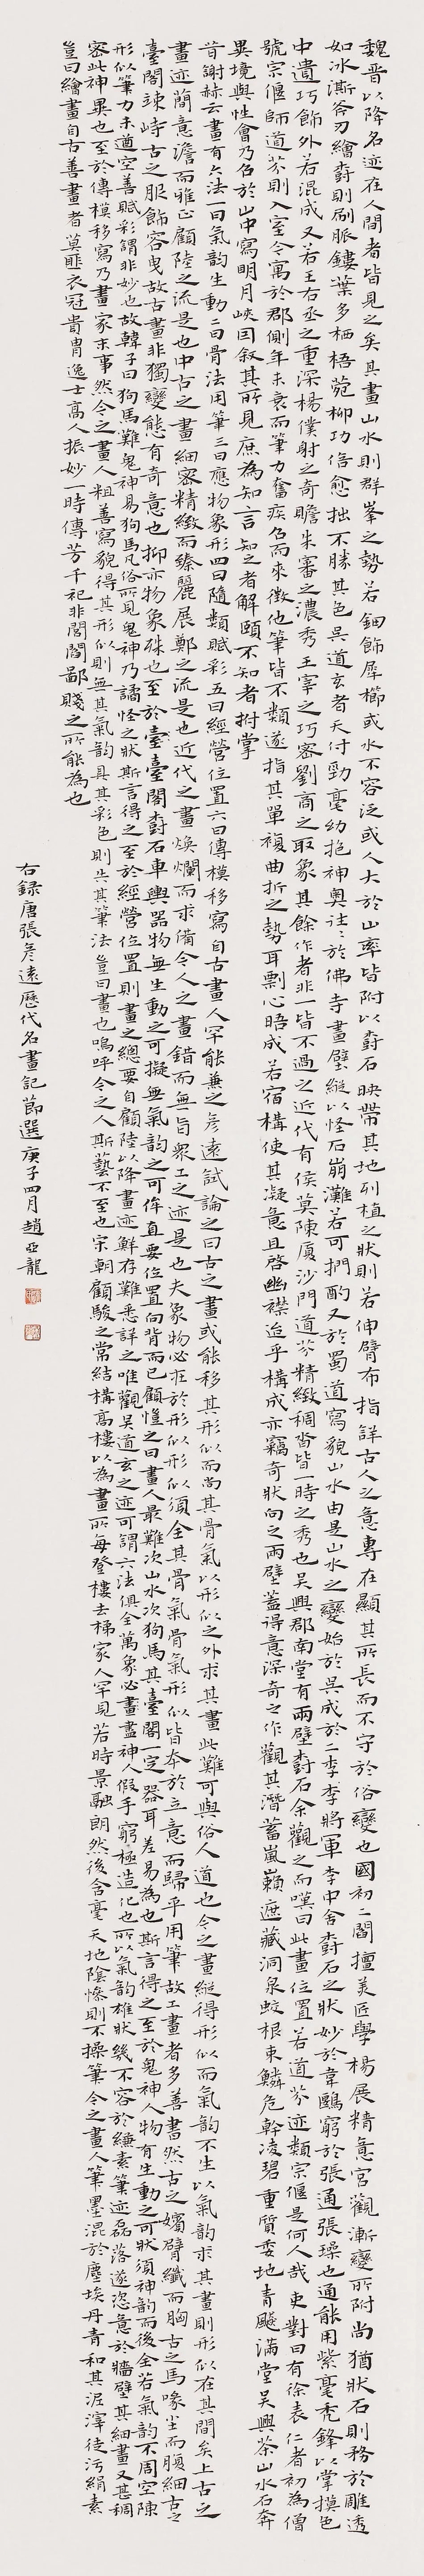 魏晉以降名迹在人間者皆見之矣其畫山水則群峯之勢若鈿飾犀櫛或水不容泛或人大於山率皆附以樹石映帶其地列植之狀則若伸臂布指詳古人之意專在顯其所長而不守於俗變也國初二閻擅美匠學楊展精意宮觀漸變所附尚猶狀石則務於雕透
如冰澌斧刃繪樹則刷脈鏤葉多栖梧菀柳功倍愈拙不勝其色吳道玄者天付勁毫幼抱神奧往往於佛寺畫壁縱以怪石崩灘若可捫酌又於蜀道寫貌山水由是山水之變始於吳成於二李李將軍李中舍樹石之狀妙於韋鶠窮於張通張璪也通能用紫毫禿鋒以掌摸色
中遺巧飾外若混成又若王右丞之重深楊僕射之奇贍朱審之濃秀王宰之巧密劉商之取象其餘作者非一皆不過之近代有侯莫陳廈沙門道芬精緻稠沓皆一時之秀也吳興郡南堂有兩壁樹石余觀之而嘆曰此畫位置若道芬迹類宗偃是何人哉吏對曰有徐表仁者初為僧
號宗偃師道芬則入室今寓於郡側年未衰而筆力奮疾召而來徵他筆皆不類遂指其單複曲折之勢耳剽心晤成若宿構使其凝意且啓幽襟迨乎構成亦竊奇狀向之兩壁蓋得意深奇之作觀其潛蓄嵐瀨遮藏洞泉蛟根束鱗危幹凌碧重質委地青飇滿堂吳興茶山水石奔
異境與性會乃召於山中寫明月峽因敘其所見庶為知言知之者解頤不知者拊掌
昔謝赫云畫有六法一曰氣韵生動二曰骨法用筆三曰應物象形四曰隨類賦彩五曰經營位置六曰傳模移寫自古畫人罕能兼之彥遠試論之曰古之畫或能移其形似而尚其骨氣以形似之外求其畫此難可與俗人道也今之畫縱得形似而氣韵不生以氣韵求其畫則形似在其間矣上古之
畫迹簡意澹而雅正顧陸之流是也中古之畫細密精緻而臻麗展鄭之流是也近代之畫煥爛而求備今人之畫錯而無旨衆工之迹是也夫象物必在於形似形似須全其骨氣骨氣形似皆本於立意而歸乎用筆故工畫者多善書然古之嬪臂纖而胸古之馬喙尖而腹細古之
臺閣竦峙古之服飾容曳故古畫非獨變態有奇意也抑亦物象殊也至於臺臺閣樹石車輿器物無生動之可擬無氣韵之可侔直要位置向背而已顧愷之曰畫人最難次山水次狗馬其臺閣一定器耳差易為也斯言得之至於鬼神人物有生動之可狀須神韵而後全若氣韵不周空陳
形似筆力未遒空善賦彩謂非妙也故韓子曰狗馬難鬼神易狗馬凡俗所見鬼神乃譎怪之狀斯言得之至於經營位置則畫之總要自顧陸以降畫迹鮮存難悉詳之唯觀吳道玄之迹可謂六法俱全萬象必畫盡神人假手窮極造化也所以氣韵雄狀幾不容於縑素筆迹磊落遂恣意於牆壁其細畫又甚稠
密此神異也至於傳模移寫乃畫家末事然今之畫人粗善寫貌得其形似則無其氣韵具其彩色則失其筆法豈曰畫也嗚呼今之人斯藝不至也宋朝顧駿之常結構高樓以為畫所每登樓去梯家人罕見若時景融朗然後含毫天地陰慘則不操筆今之畫人筆墨混於塵埃丹青和其泥滓徒污絹素
豈曰繪畫自古善畫者莫匪衣冠貴胄逸士高人振妙一時傳芳千祀非閭閻鄙賤之所能為也
右錄唐張彥遠歷代名畫記節選庚子四月趙亞龍